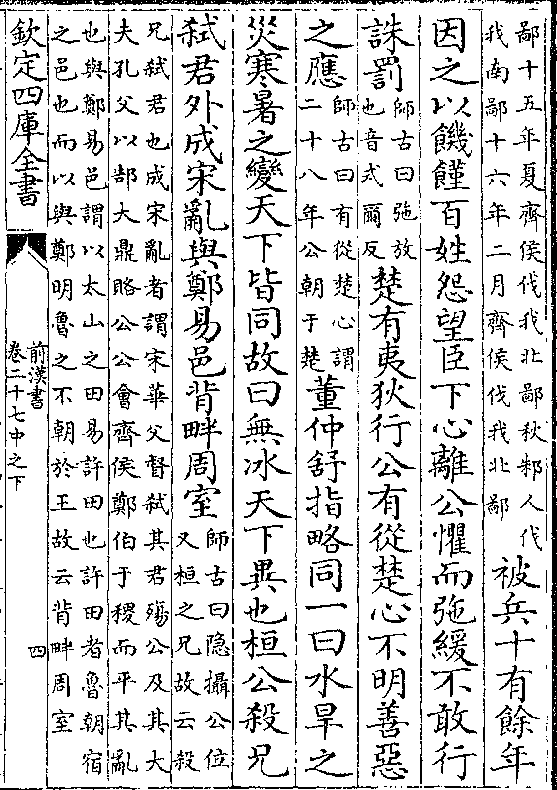 鄙十五年夏齊侯伐我北鄙秋邾人伐
我南鄙十六年二月齊侯伐我北鄙
被兵十有餘年
因之以饑饉百姓怨望臣下心離公懼而弛緩不敢行
誅罰
師古曰弛放
也音式爾反
楚有夷狄行公有從楚心不明善惡
之應
師古曰有從楚心謂
二十八年公朝于楚
董仲舒指略同一曰水旱之
災寒暑之變天下皆同故曰無冰天下異也桓公殺兄
弑君外成宋亂與鄭易邑背畔周室
師古曰隐攝公位
又桓之兄故云殺
兄弑君也成宋亂者謂宋華父督弑其君殤公及其大
夫孔父以郜大鼎賂公公會齊侯鄭伯于稷而平其亂
也與鄭易邑謂以太山之田易許田也許田者魯朝宿
之邑也而以與鄭明魯之不朝於王故云背畔周室
欽定四庫全書
前漢書
卷二十七中之下
四